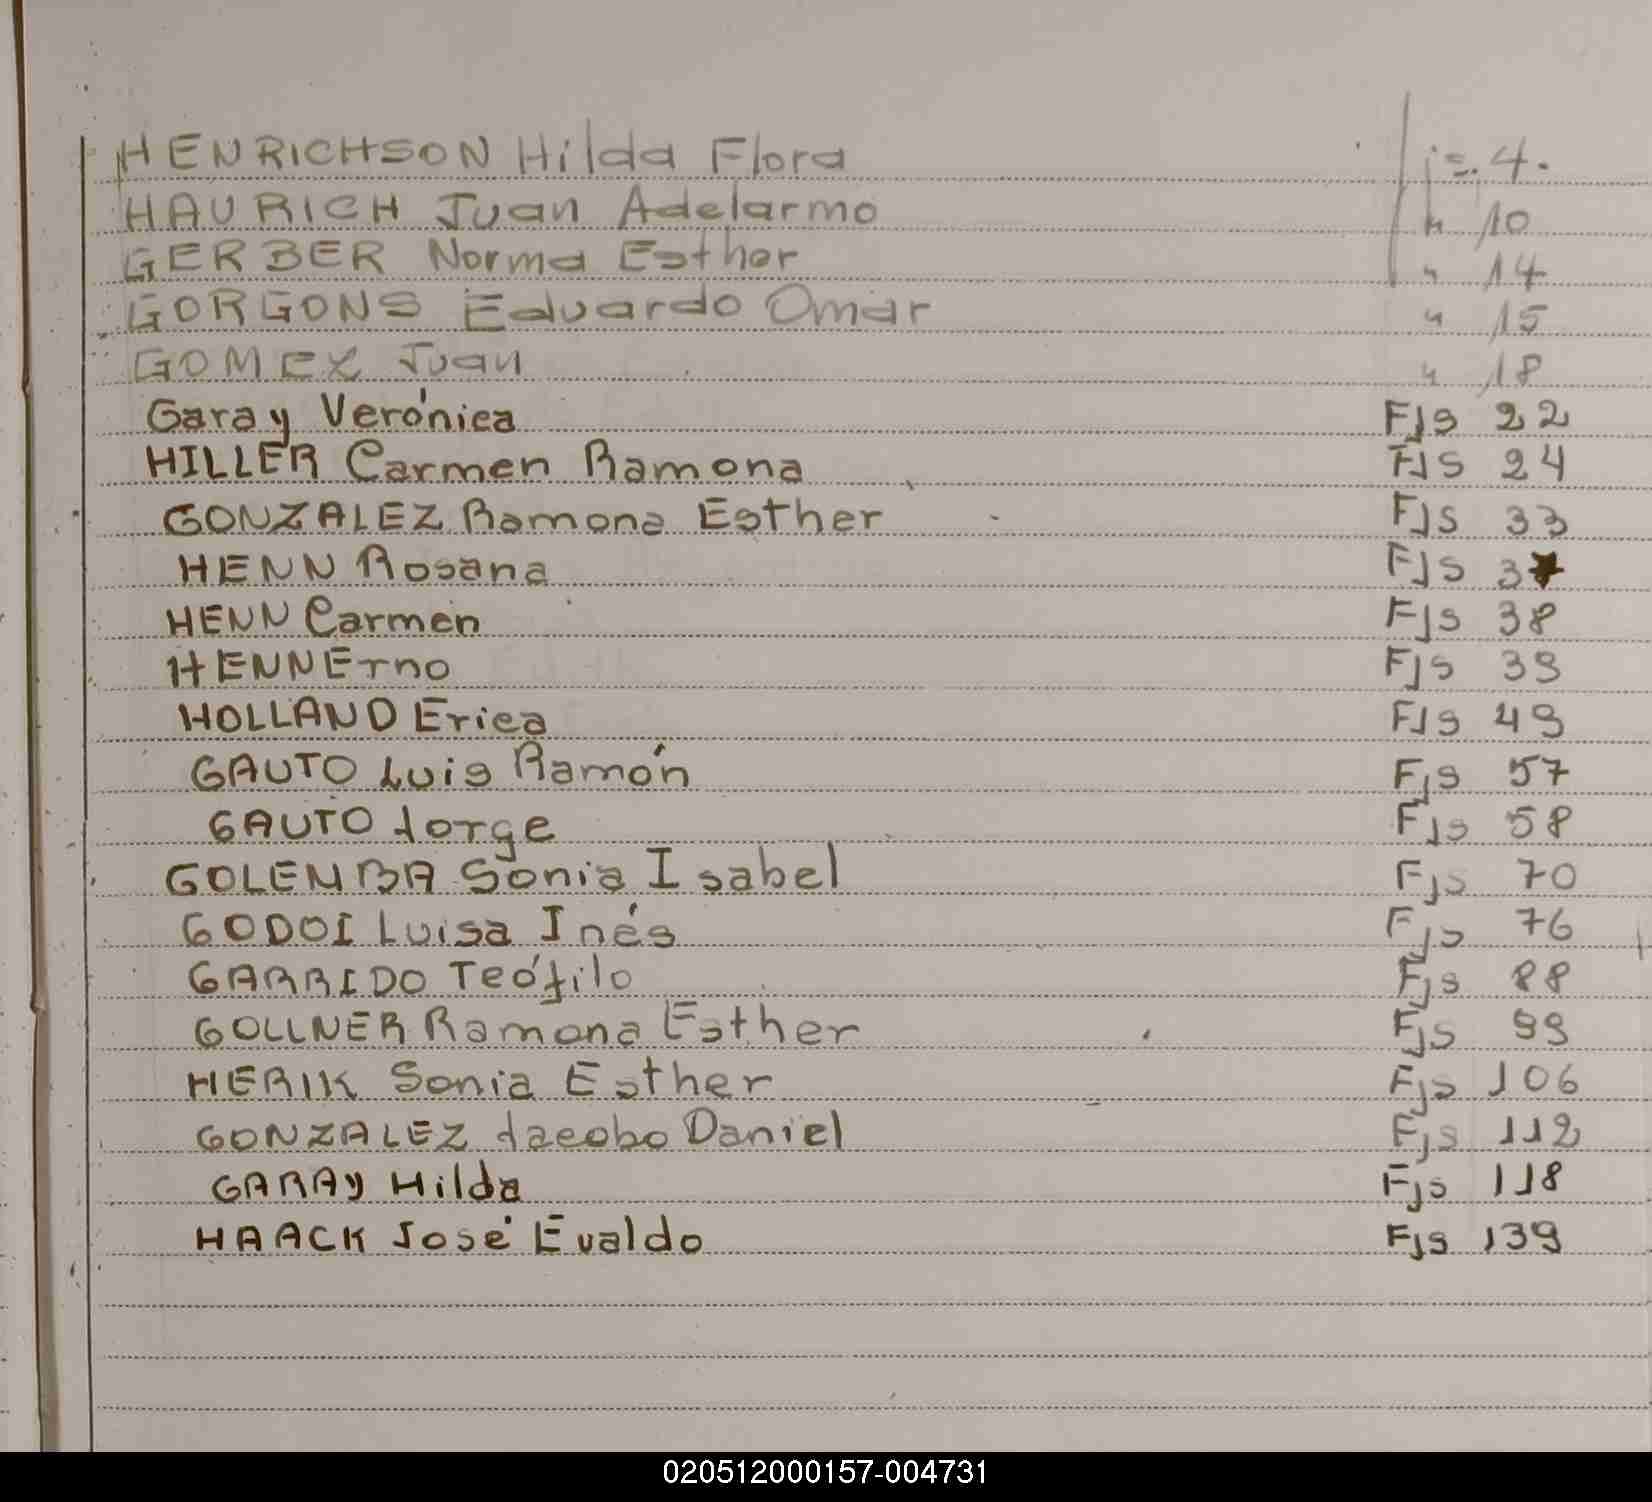 HENRICHSON Hilda Flora fjs. 4.
HAURICH Juan Adelarmo " 10
GERBER Norma Esther " 14
GORGONS Eduardo Omar " 15
GOMEZ Juan " 18
Garay Verónica FJS 22
HILLER Carmen Ramona FJS 24
GONZALEZ Ramona Esther FJS 33
HENN Rosana FJS 37
HENN Carmen FJS 38
HENN Erno FJS 39
HOLLAND Erica FJS 49
GAUTO Luis Ramón FJS 57
GAUTO Jorge FJS 58
GOLEMBA Sonia Isabel FJS 70
GODOI Luisa Inés FJS 76
GARRIDO Teófilo FJS 88
GOLLNER Ramona Esther FJS 99
HERIK Sonia Esther FJS 106
GONZALEZ Jacobo Daniel FJS 112
GARAY Hilda FJS 118
HAACK José Evaldo FJS 139
020512000157-004731